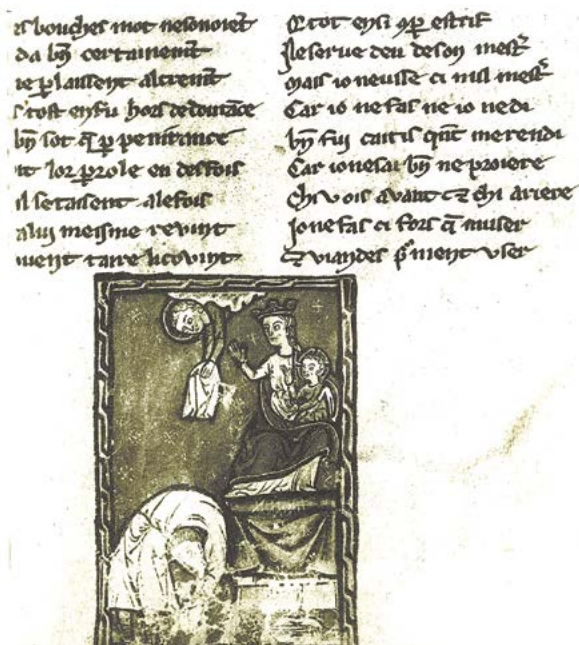 bouches mot nesonoiēt
da bn̄ certainemt̄
altremt̄
tost en fu hors de doutāce
bn̄ sot q̄ ꝑ penitance
lor ꝑole en des fois
il se taisent alefois
a lui meisme revint
taire li covint
tot ensi ꝑ estrif
Ie serve deu de son mest̄
Mais io neusse ci nul mest̄
Car io ne fas ne io ne di
bn̄ fui caitis qn̄t me rendi
Car io ne sai bn̄ ne proiere
Chi vois avant ⁊ chi ariere
Io ne fas ci fors q̄ muser
⁊ viandes nient vser